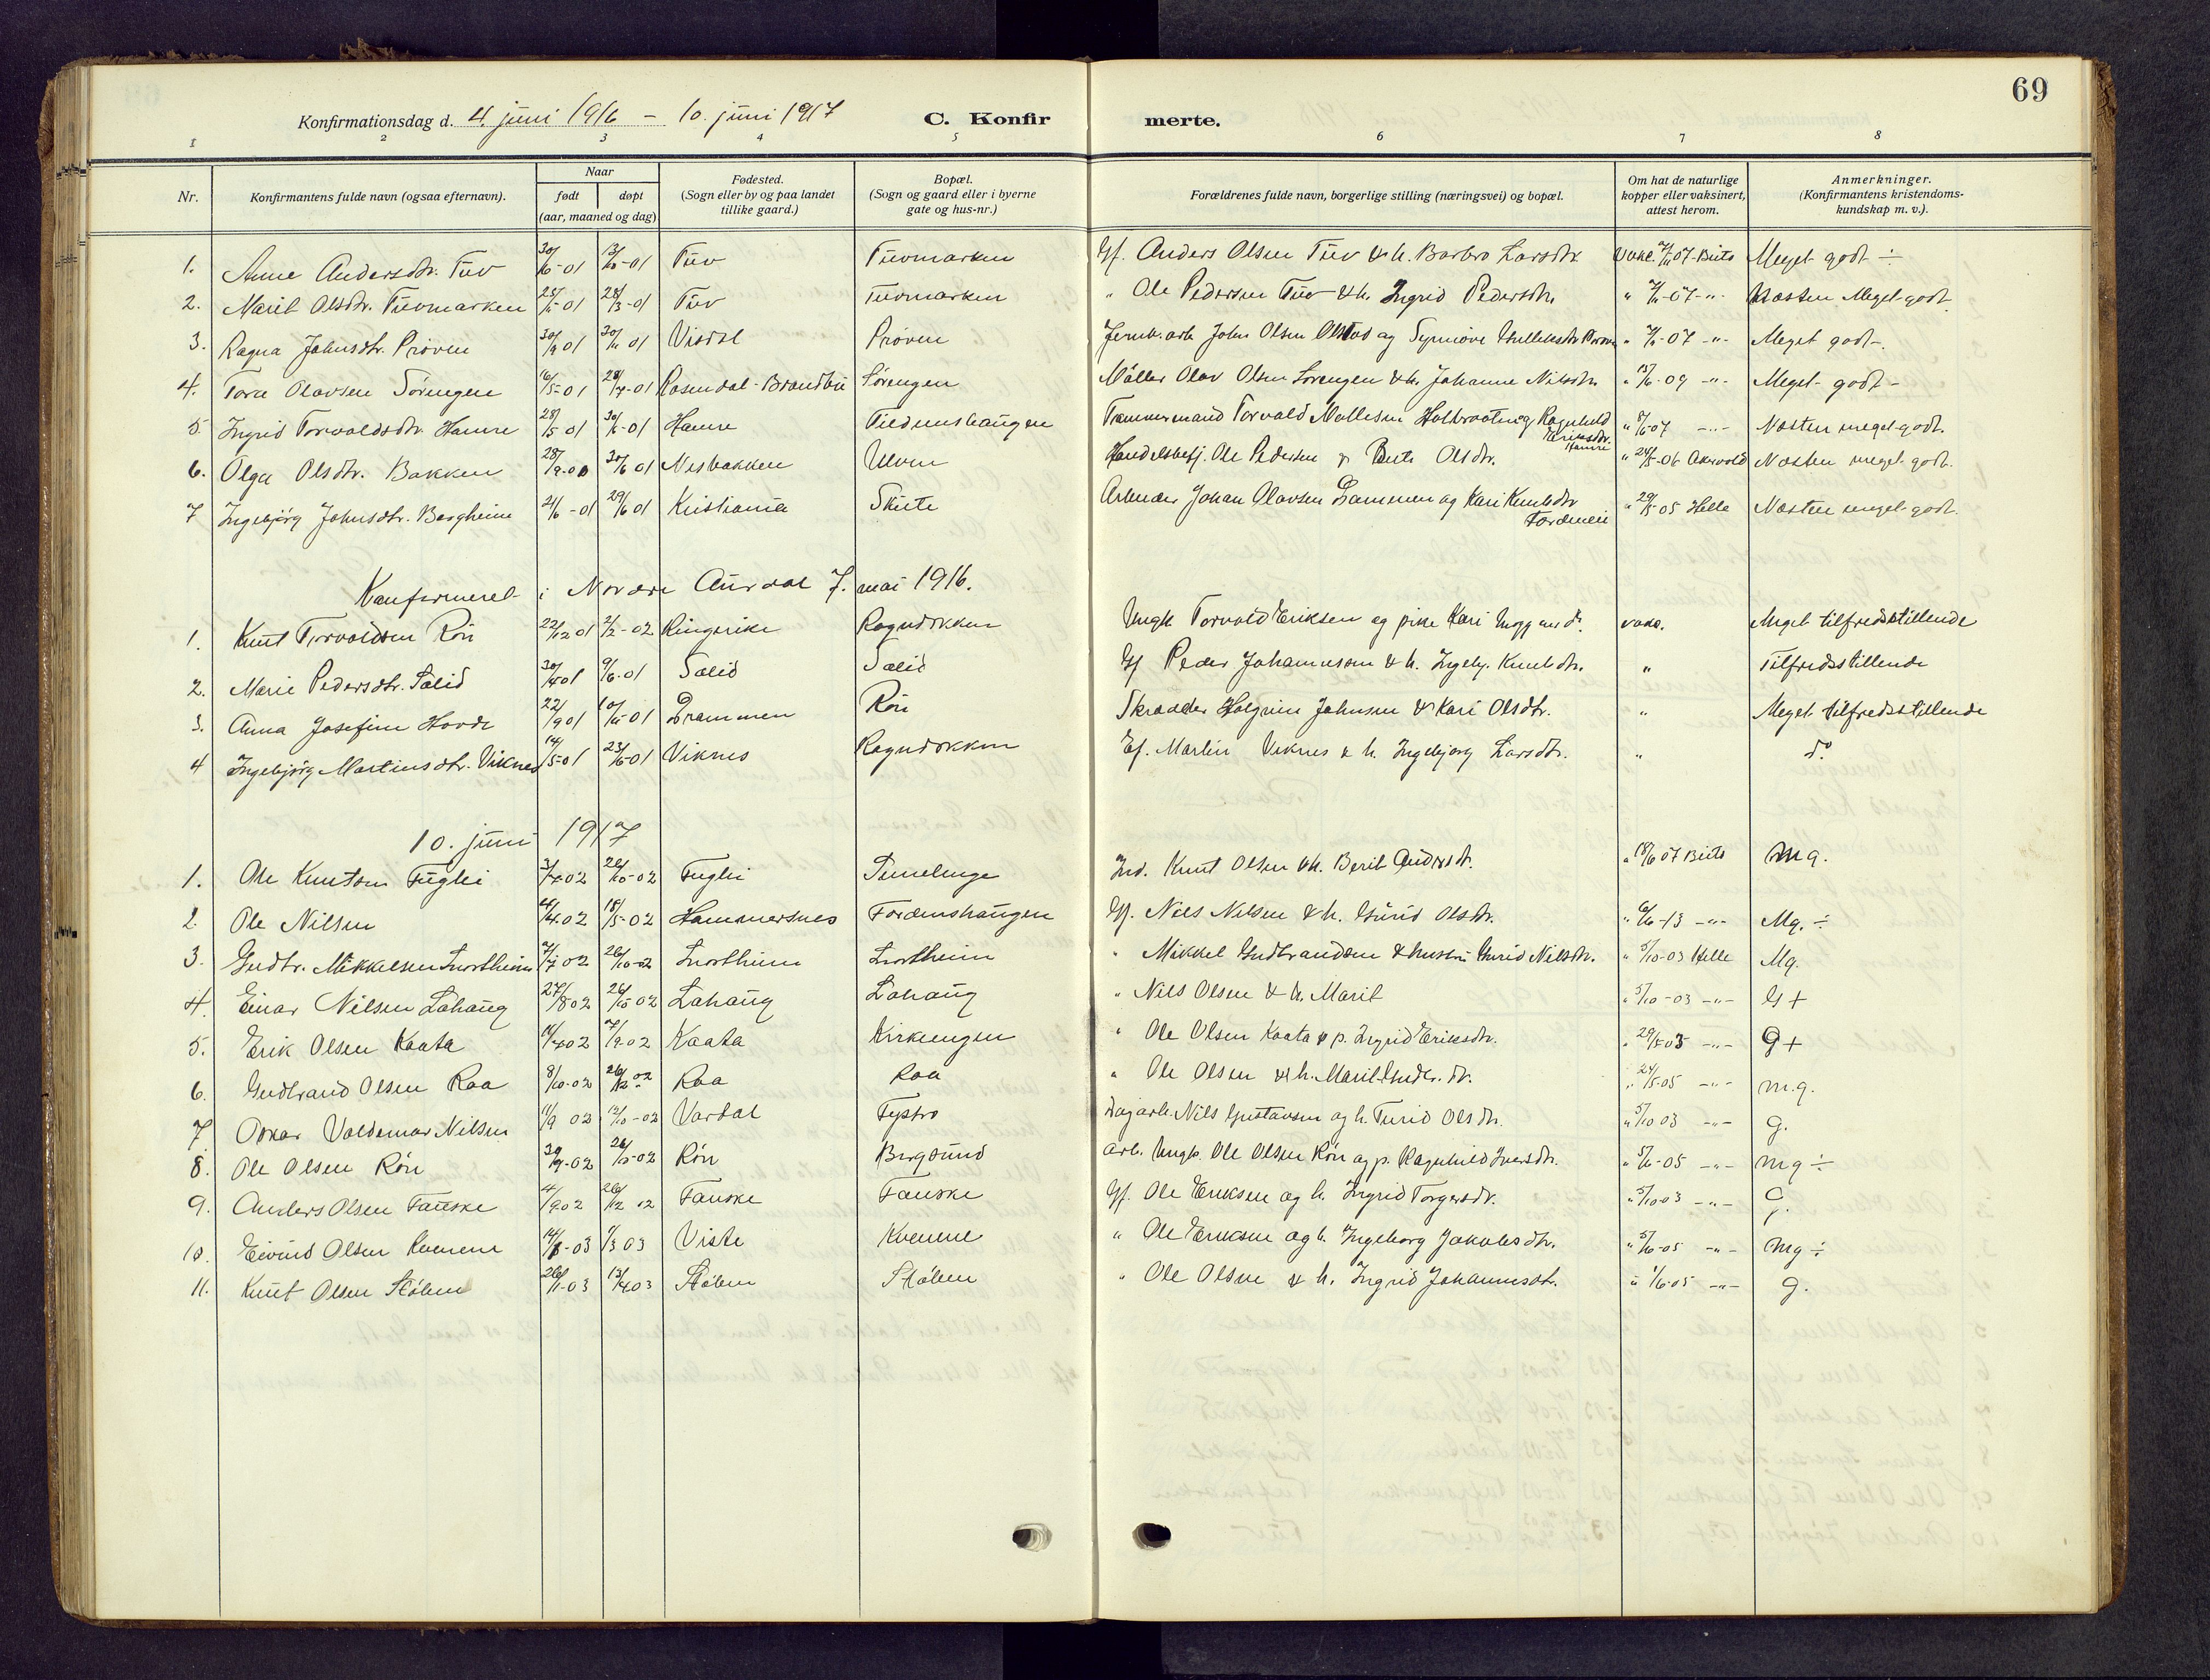 69
Konfirmationsdag d. 4. juni 1916 – 10. juni 1917 C. Konfirmerte.
1 2 3 4 5 6 7 8
Nr. Konfirmantens fulde navn (ogsaa efternavn). Naar født døpt (aar, maaned og dag) Fødested. (Sogn eller by og paa landet tillike gaard.) Bopæl. (Sogn og gaard eller i byerne gate og hus-nr.) Forældrenes fulde navn, borgerlige stilling (næringsvei) og bopæl. Om hat de naturlige kopper eller vaksinert, attest herom. Anmerkninger. (Konfirmantens kristendomskundskap m. v.).
1. Anne Andersdtr. Tuv Tuv Tuvmarken Gf. Anders Olsen Tuv & h. Barbro Larsdtr. Meget godt ÷
2. Marit Olsdtr. Tuvmarken Tuv Tuvmarken " Ole Pedersen Tuv & h. Ingrid Pedersdtr. Næsten Meget godt.
3. Ragna Johnsdtr. Prøven 30/9 01 Visdal Prøven John Olsen Meget godt.
4. Tora Olavsen Sørengen 16/5-01 Rosendal - Brandbu Sørengen Møller Olav Olsen Sørengen & h. Johanne Nilsdtr. Meget godt -
5. Ingrid Torvaldsdtr. Hamre 28/5 01 Hamre Tømmermand Torvald og Ragnhild Eriksdtr. Hamre Næsten meget godt.
6. Olga Olsdtr. Bakken Nesbakken Ulven Handelsbetj. Ole Pedersen & Berte Olsdtr. Næsten meget godt.
7 Ingebjörg Johnsdtr. Bergheim 24/6 -01 29/6 01 Kristiania Skute Arbeider Johan Olavsen og Kari Knutsdtr " 29/5-05 Helle Næsten meget godt.
Konfirmeret i Nordre Aurdal 7. mai 1916.
1. Knut Torvaldsen Røn 22/12 01 2/2-02 Ringerike Ragndokken Ungk Torvald Eriksen og pike Kari vakc. Meget tilfredsstillende
2. Marie Pedersdtr. Sælid 9/6-01 Sælid Sælid Gf Peder Johannessen & h. Ingebj. Knutsdtr. " Tilfredsstillende
3. Anna Josefine Hovde 22/9 01 Drammen Røn Skrædder Halgrim Johnsen & Kari Olsdtr. " Meget tilfredsstillende
4 Ingebjörg Martinsdtr. Viknes 14/5-01 Viknes Ragndokken Gf. Martin Viknes & h. Ingebjørg Larsdtr. " do
10. juni 1917
1. Ole Knutson Fuglei Fuglei Ind. Knut Olsen & h. Berit Andersdtr. " 18/6 07 Mg.
2. Ole Nilsen 4/4-02 18/5-02 Hammersnes Fordenshaugen Gf. Nils Nilsen & h. Gurid Olsdtr. " 6/6-13 -"- Mg. ÷
3. Gudbr. Mikkelsen Snortheim 7/7 02 26/10-02 Snortheim Snortheim " Mikkel Gudbrandsen & hustru Gurid Nilsdtr. " 5/10-03 Helle Mg.
4. Einar Nilsen Lohaug 27/8 02 26/10 02 Lohaug Lohaug " Nils Olsen & h. Marit " 5/10-03 -"- G +
5. Erik Olsen Kaata 7/9-02 Kaata Kirkeengen " Ole Olsen Kaata & p. Ingrid Eriksdtr. -"- G +
6. Gudbrand Olsen Raa 8/10-02 26/12 02 Raa Raa " Ole Olsen & h. Marit Gudbr. dtr. " 24/5-05 -"- m.g.
7 Oskar Valdemar Nilsen 11/9 02 12/10-02 Vardal Fystro Dagarb. Nils Gustavsen og h. Turid Olsdtr. " 5/10 03 -"- g.
8. Ole Olsen Røn Røn Bergsund arb. Ungk. Ole Olsen Røn og p. Ragnhild Iversdtr. " 5/6-05 -"- mg ÷
9. Anders Olsen Fauske 4/9 02 26/12 02 Fauske Fauske Gf. Ole Eriksen og h. Ingrid Torgersdtr. " 5/10-03 -"- G.
10. Eivind Olsen Kvenene 1/3 03 Viste Kvenene " Ole Eriksen og h. Ingeborg Jakobsdtr. " 5/6-05 -"- Mg ÷
11. Knut Olsen Stølen 13/4 03 Stølen Stølen " Ole Olsen & h. Ingrid Johannesdt. " 1/6-05 -"- g.